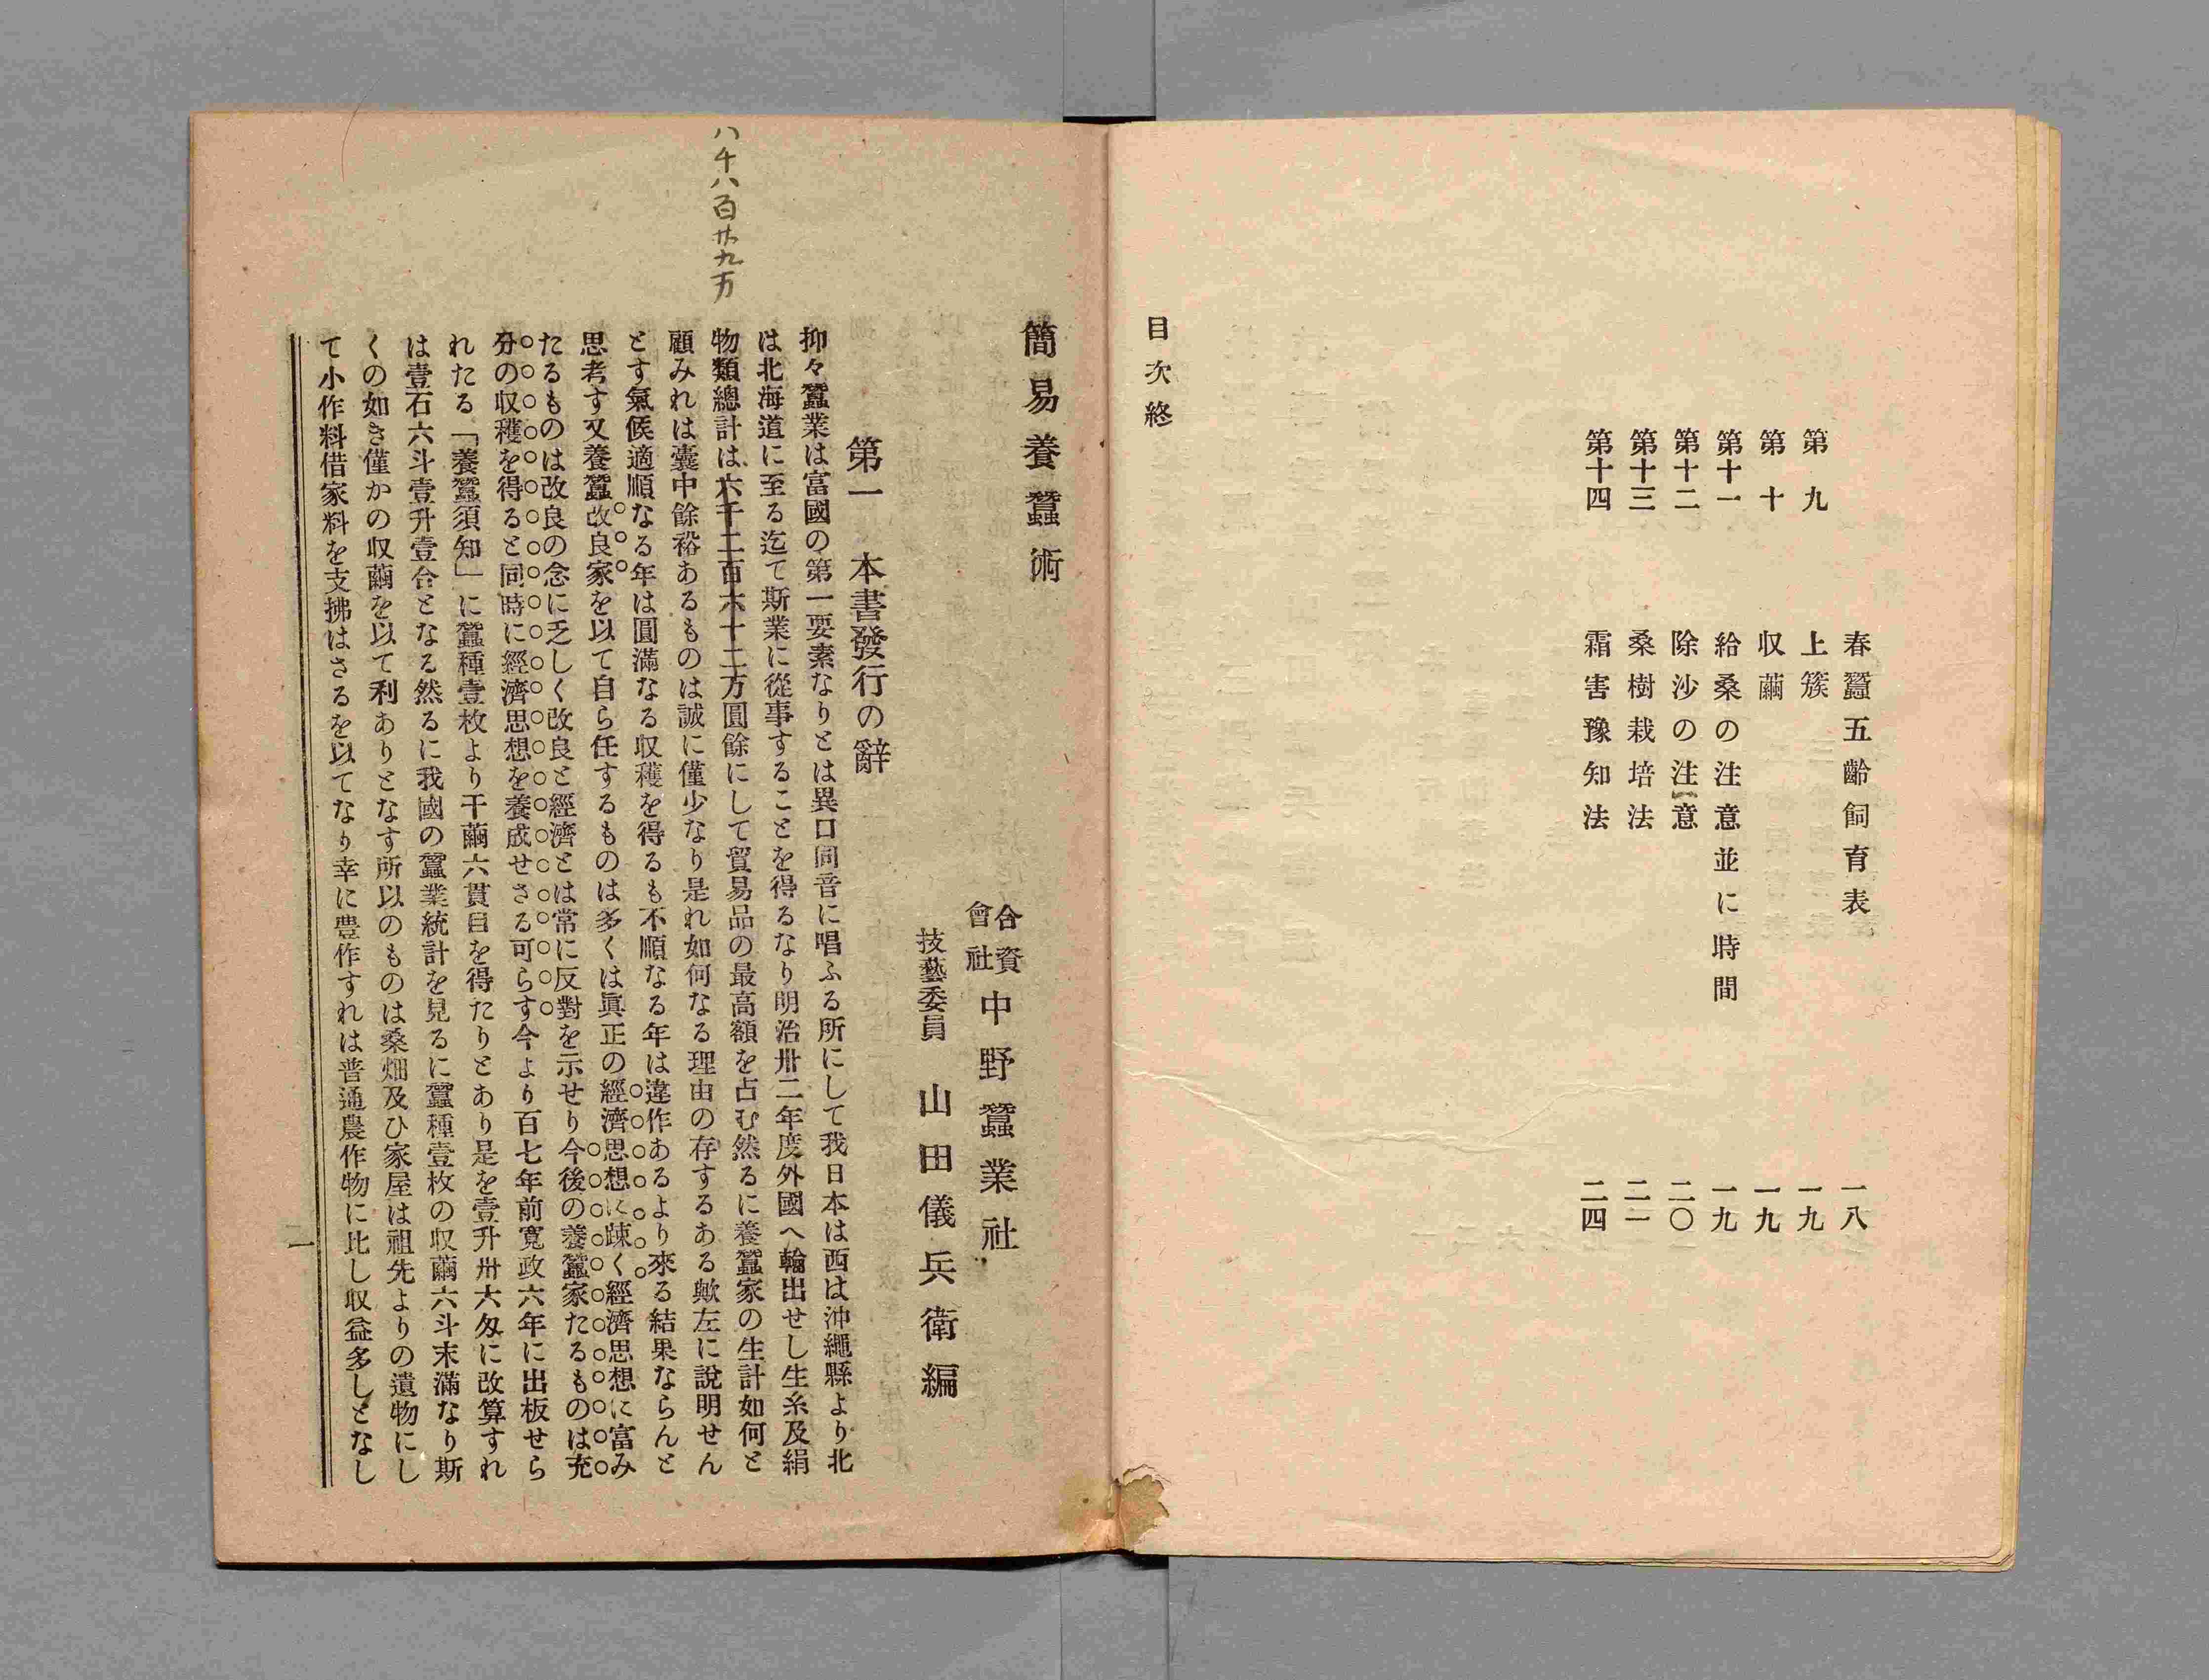 春蠶五齡飼育表 一八
第九 上簇 一九
第十 収繭 一九
第十一 給桑の注意並に時間 一九
第十二 除沙の注意 二〇
第十三 桑樹栽培法 二一
第十四 霜害豫知法 二四
目次終
簡易養蠶術
合資會社 中野蠶業社
技藝委員 山田儀兵衛編
第一 本書發行の辭
抑々蠶業は富國の第一要素なりとは異口同音に唱ふる所にして我日本は西は沖繩縣より北
は北海道に至る迄て斯業に從事することを得るなり明治卅二年度外國へ輸出せし生糸及絹
物類總計は六千二百六十二万圓餘にして貿易品の最高額を占む然るに養蠶家の生計如何と
顧みれは嚢中餘裕あるものは誠に僅少なり是れ如何なる理由の存するある歟左に說明せん
とす氣候適順なる年は圓滿なる収穫を得るも不順なる年は違作あるより來る結果ならんと
思考す又養蠶改良家を以て自ら任するものは多くは眞正の經濟思想に疎く經濟思想に富み
たるものは改良の念に乏しく改良と經濟とは常に反對を示せり今後の養蠶家たるものは充
分の収穫を得ると同時に經濟思想を養成せさる可らす今より百七年前寛政六年に出板せら
れたる「養蠶須知」に蠶種壹枚より干繭六貫目を得たりとあり是を壹升卅六匁に改算すれ
は壹石六斗壹升壹合となる然るに我國の蠶業統計を見るに蠶種壹枚の収繭六斗末滿なり斯
くの如き僅かの収繭を以て利ありとなす所以のものは桑畑及ひ家屋は祖先よりの遺物にし
て小作料借家料を支拂はさるを以てなり幸に豊作すれは普通農作物に比し収益多しとなし
一
八千八百廿九万